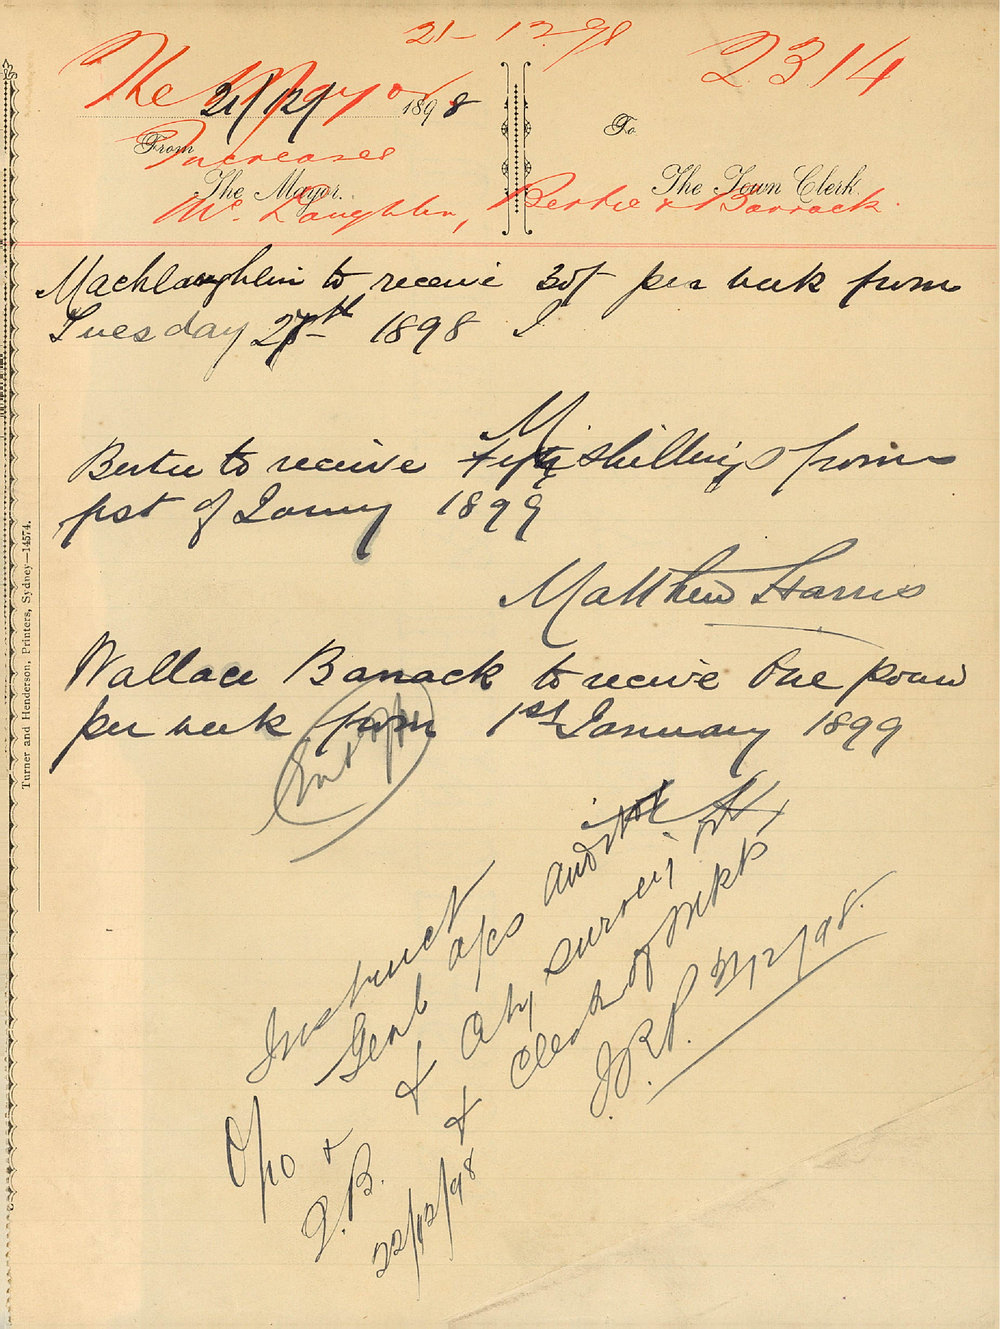 21-12.98
2314
The Mayor
21/12/ 1898
From
To
Increases
The Mayor.
The Town Clerk
Mc Laughlin, Bertie & Barrack.
Machlaughlin to receive 30/ per week from
Tuesday 27th 1898
Bertie to receive Fifty shillings from
first of January 1899
Matthew Harris
Wallace Barrack to receive One pound
per week from 1st January 1899
Instruct
Genl a/cs auditor
& City surveyor
& Clerk of Mkts
J.R.P. 21/12/98.
O/po &
J.B.
22/12/98
Turner and Henderson, Printers, Sydney—14574.